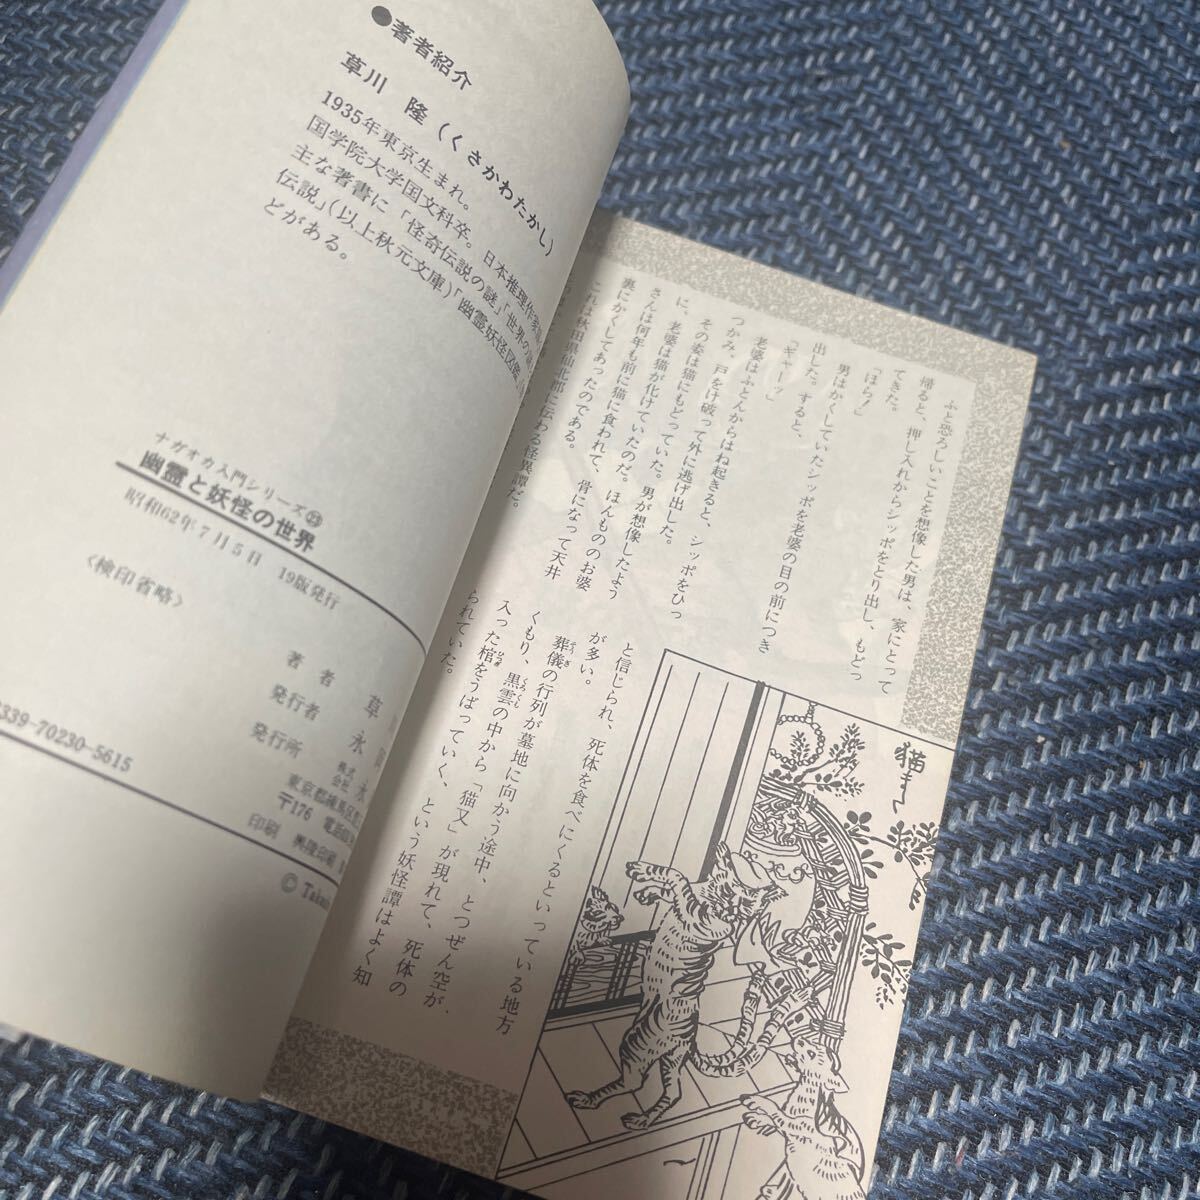 ●著者紹介
草川 隆(くさかわたかし)
1935年東京生まれ。
国学院大学国文科卒。日本推理作家
主な著書に「怪奇伝説の謎」「世界の
伝説」(以上秋元文庫)「幽霊妖怪図鑑
どがある。
ナガオカ入門シリーズ㉓
幽霊と妖怪の世界
昭和62年7月5日 19版発行
〈検印省略〉
著者 草
発行者 永
発行所 株式会社 永
東京都練馬区
〒176 電話
印刷 興陵印刷
©Taka
339-70230-5615
ふと恐ろしいことを想像した男は、家にとって
帰ると、押し入れからシッポをとり出し、もどっ
てきた。
「ほら!」
男はかくしていたシッポを老婆の目の前につき
出した。すると、
「ギャーッ」
老婆はふとんからはね起きると、シッポをひっ
つかみ、戸をけ破って外に逃げ出した。
その姿は猫にもどっていた。男が想像したよう
に、老婆は猫が化けていたのだ。ほんもののお婆
さんは何年も前に猫に食われて、骨になって天井
裏にかくしてあったのである。
これは秋田県仙北郡に伝わる怪異譚だ。
と信じられ、死体を食べにくるといっている地方
が多い。
葬儀の行列が墓地に向かう途中、とつぜん空が
くもり、黒雲の中から「猫又」が現れて、死体の
入った棺をうばっていく、という妖怪譚はよく知
られていた。
猫また